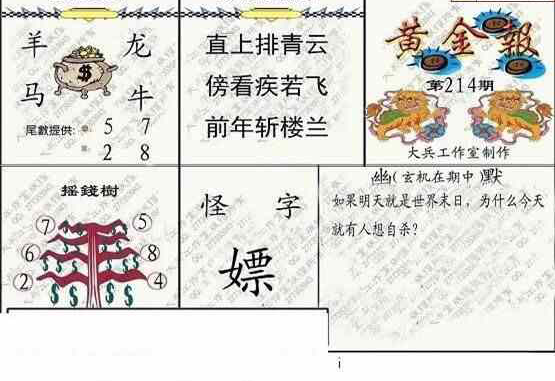 羊 龙
马 牛
$
尾數提供: 5 7
2 8
直上排青云
傍看疾若飞
前年斩楼兰
黄金報
第214期
大兵工作室制作
摇錢樹
7 5
6 8
2 4
怪 字
嫖
幽(玄机在期中 默
如果明天就是世界末日,为什么今天
就有人想自杀?
i